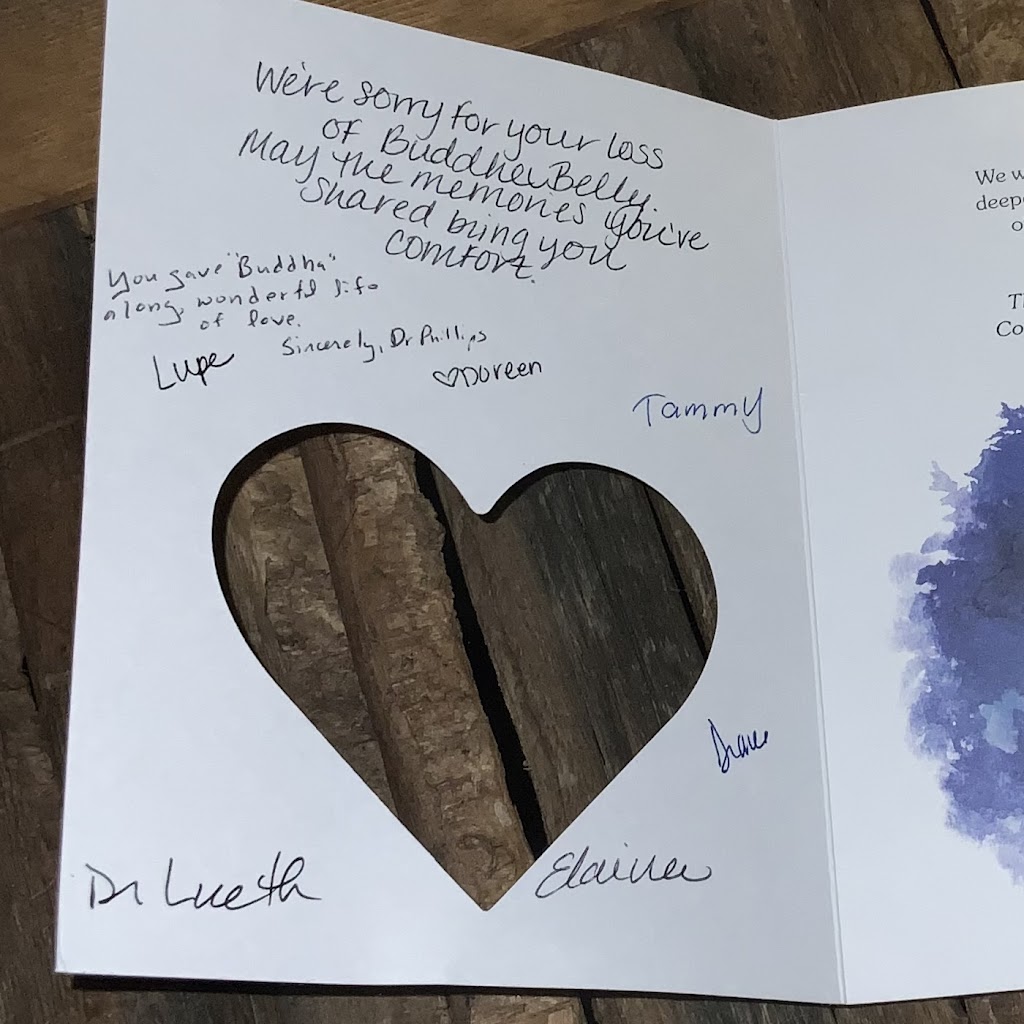 We're sorry for your loss
of Buddha Belly.
May the memories you've
shared bring you
comfort.
You gave "Buddha"
a long, wonderful life
of love.
Sincerely, Dr Phillips
Lupe
♡Doreen
Tammy
Diane
Dr Lueth
Elaina
We w
deep
o
T
Co